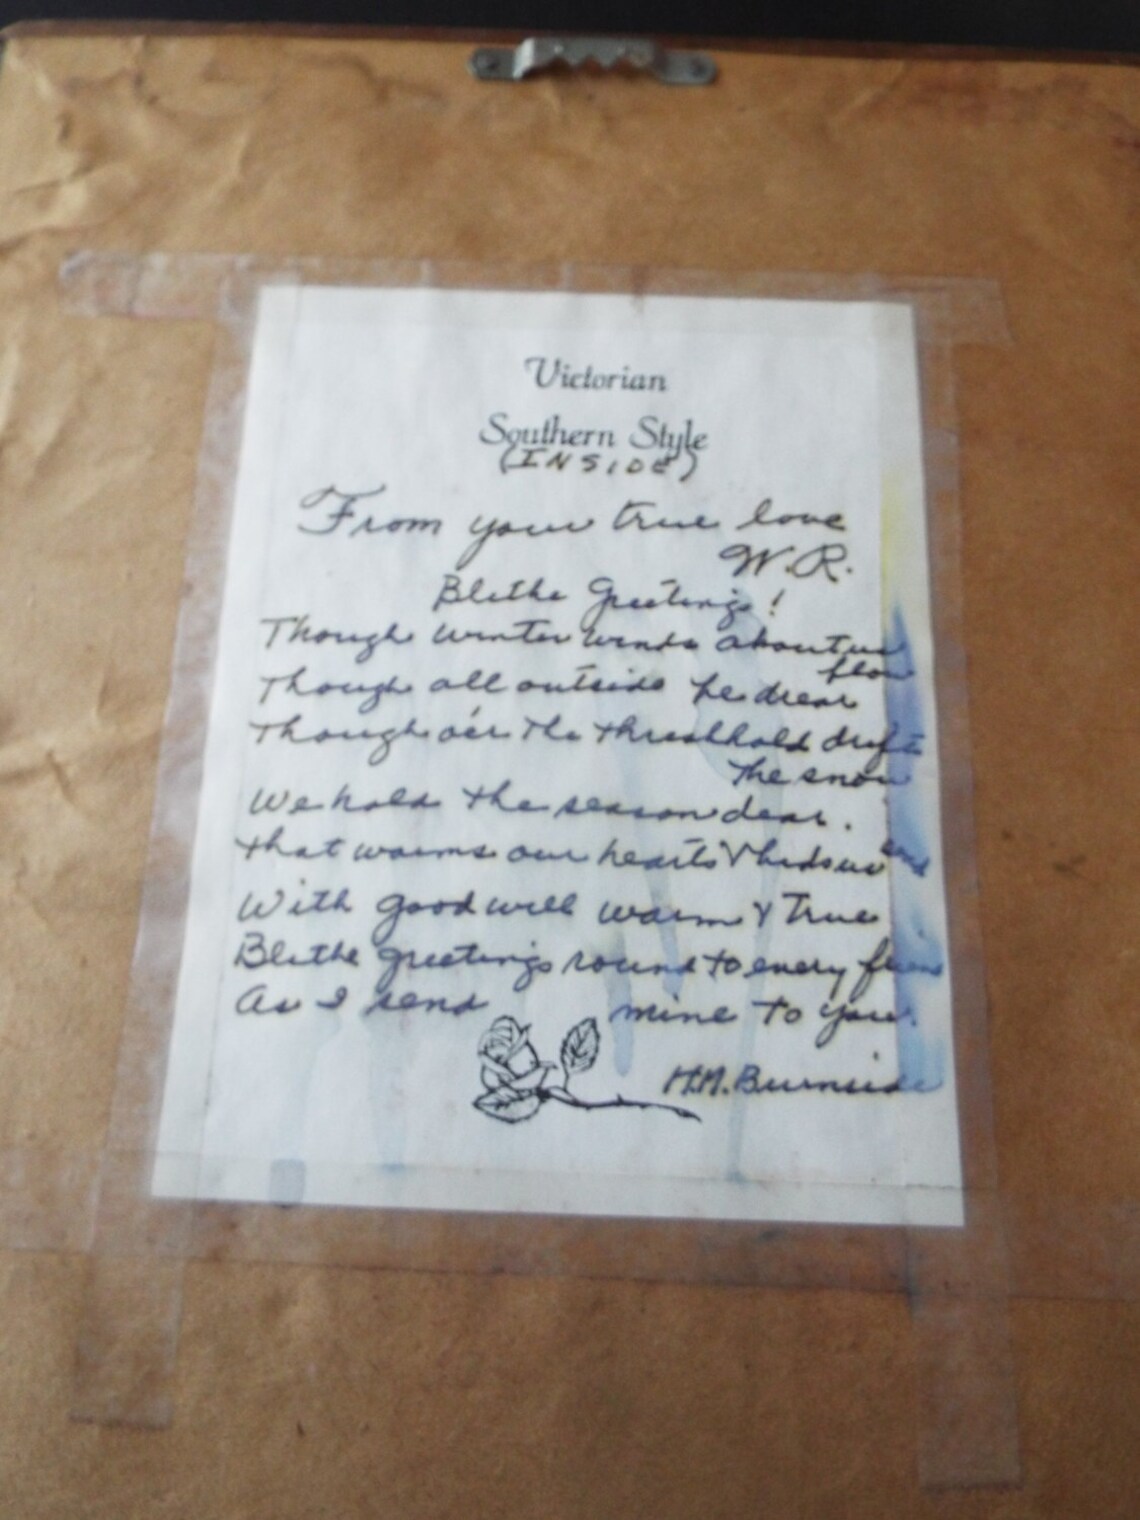 Victorian
Southern Style
(INSIDE)
From your true love
W.R.
Blithe Greetings!
Though winter winds about us
flow
Though all outside be drear
Though o'er the threshhold drift
the snow
We hold the season dear.
that warms our hearts & bids us send
With good will warm & true
Blithe greetings round to every friend
As I send mine to you.
H.M. Burnside